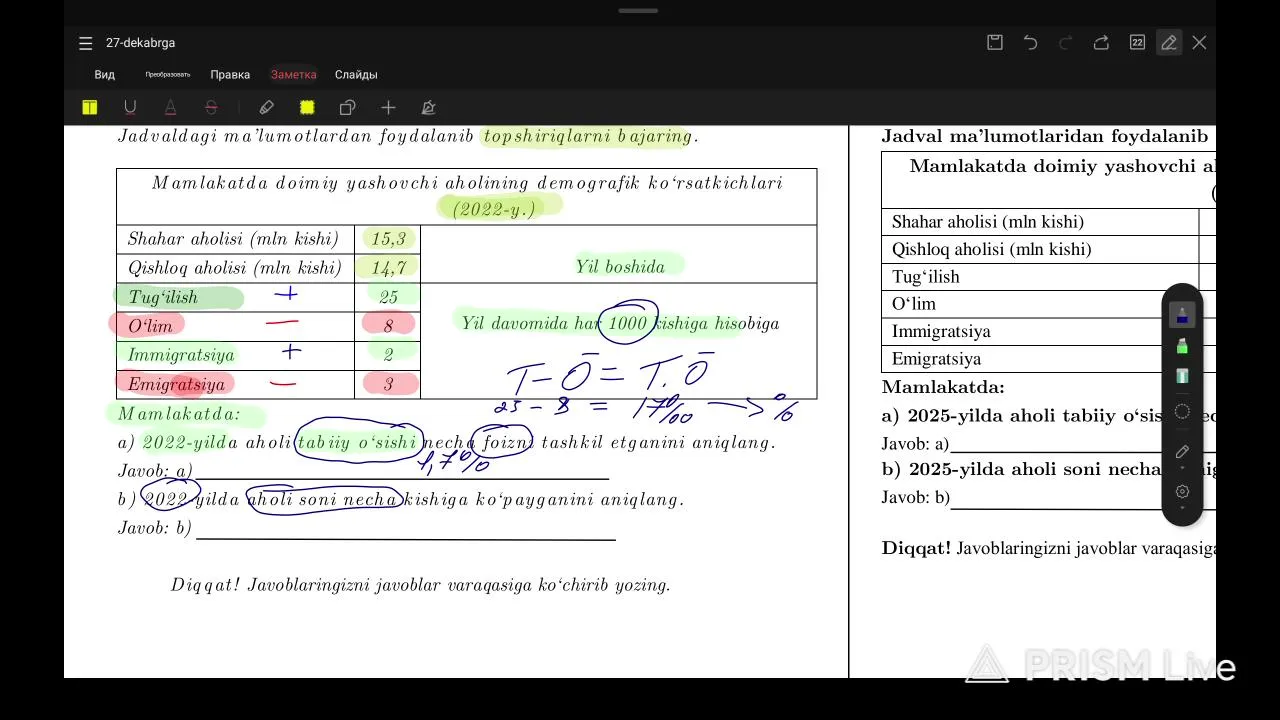 27-dekabrga
22
Вид Преобразовать Правка Заметка Слайды
Jadvaldagi ma'lumotlardan foydalanib topshiriqlarni bajaring.
Mamlakatda doimiy yashovchi aholining demografik ko‘rsatkichlari
(2022-y.)
Shahar aholisi (mln kishi) 15,3
Qishloq aholisi (mln kishi) 14,7
Yil boshida
Tug‘ilish + 25
O‘lim — 8
Immigratsiya + 2
Emigratsiya — 3
Yil davomida har 1000 kishiga hisobiga
T – Ō = T.Ō
25 – 8 = 17‰ → %
Mamlakatda:
a) 2022-yilda aholi tabiiy o‘sishi necha foizni tashkil etganini aniqlang.
1,7%
Javob: a)
b) 2022-yilda aholi soni necha kishiga ko‘payganini aniqlang.
Javob: b)
Diqqat! Javoblaringizni javoblar varaqasiga ko‘chirib yozing.
Jadval ma’lumotlaridan foydalanib
Mamlakatda doimiy yashovchi
(
Shahar aholisi (mln kishi)
Qishloq aholisi (mln kishi)
Tug‘ilish
O‘lim
Immigratsiya
Emigratsiya
Mamlakatda:
a) 2025-yilda aholi tabiiy
Javob: a)
b) 2025-yilda aholi soni
Javob: b)
Diqqat! Javoblaringizni javoblar varaqasiga
PRISM Live